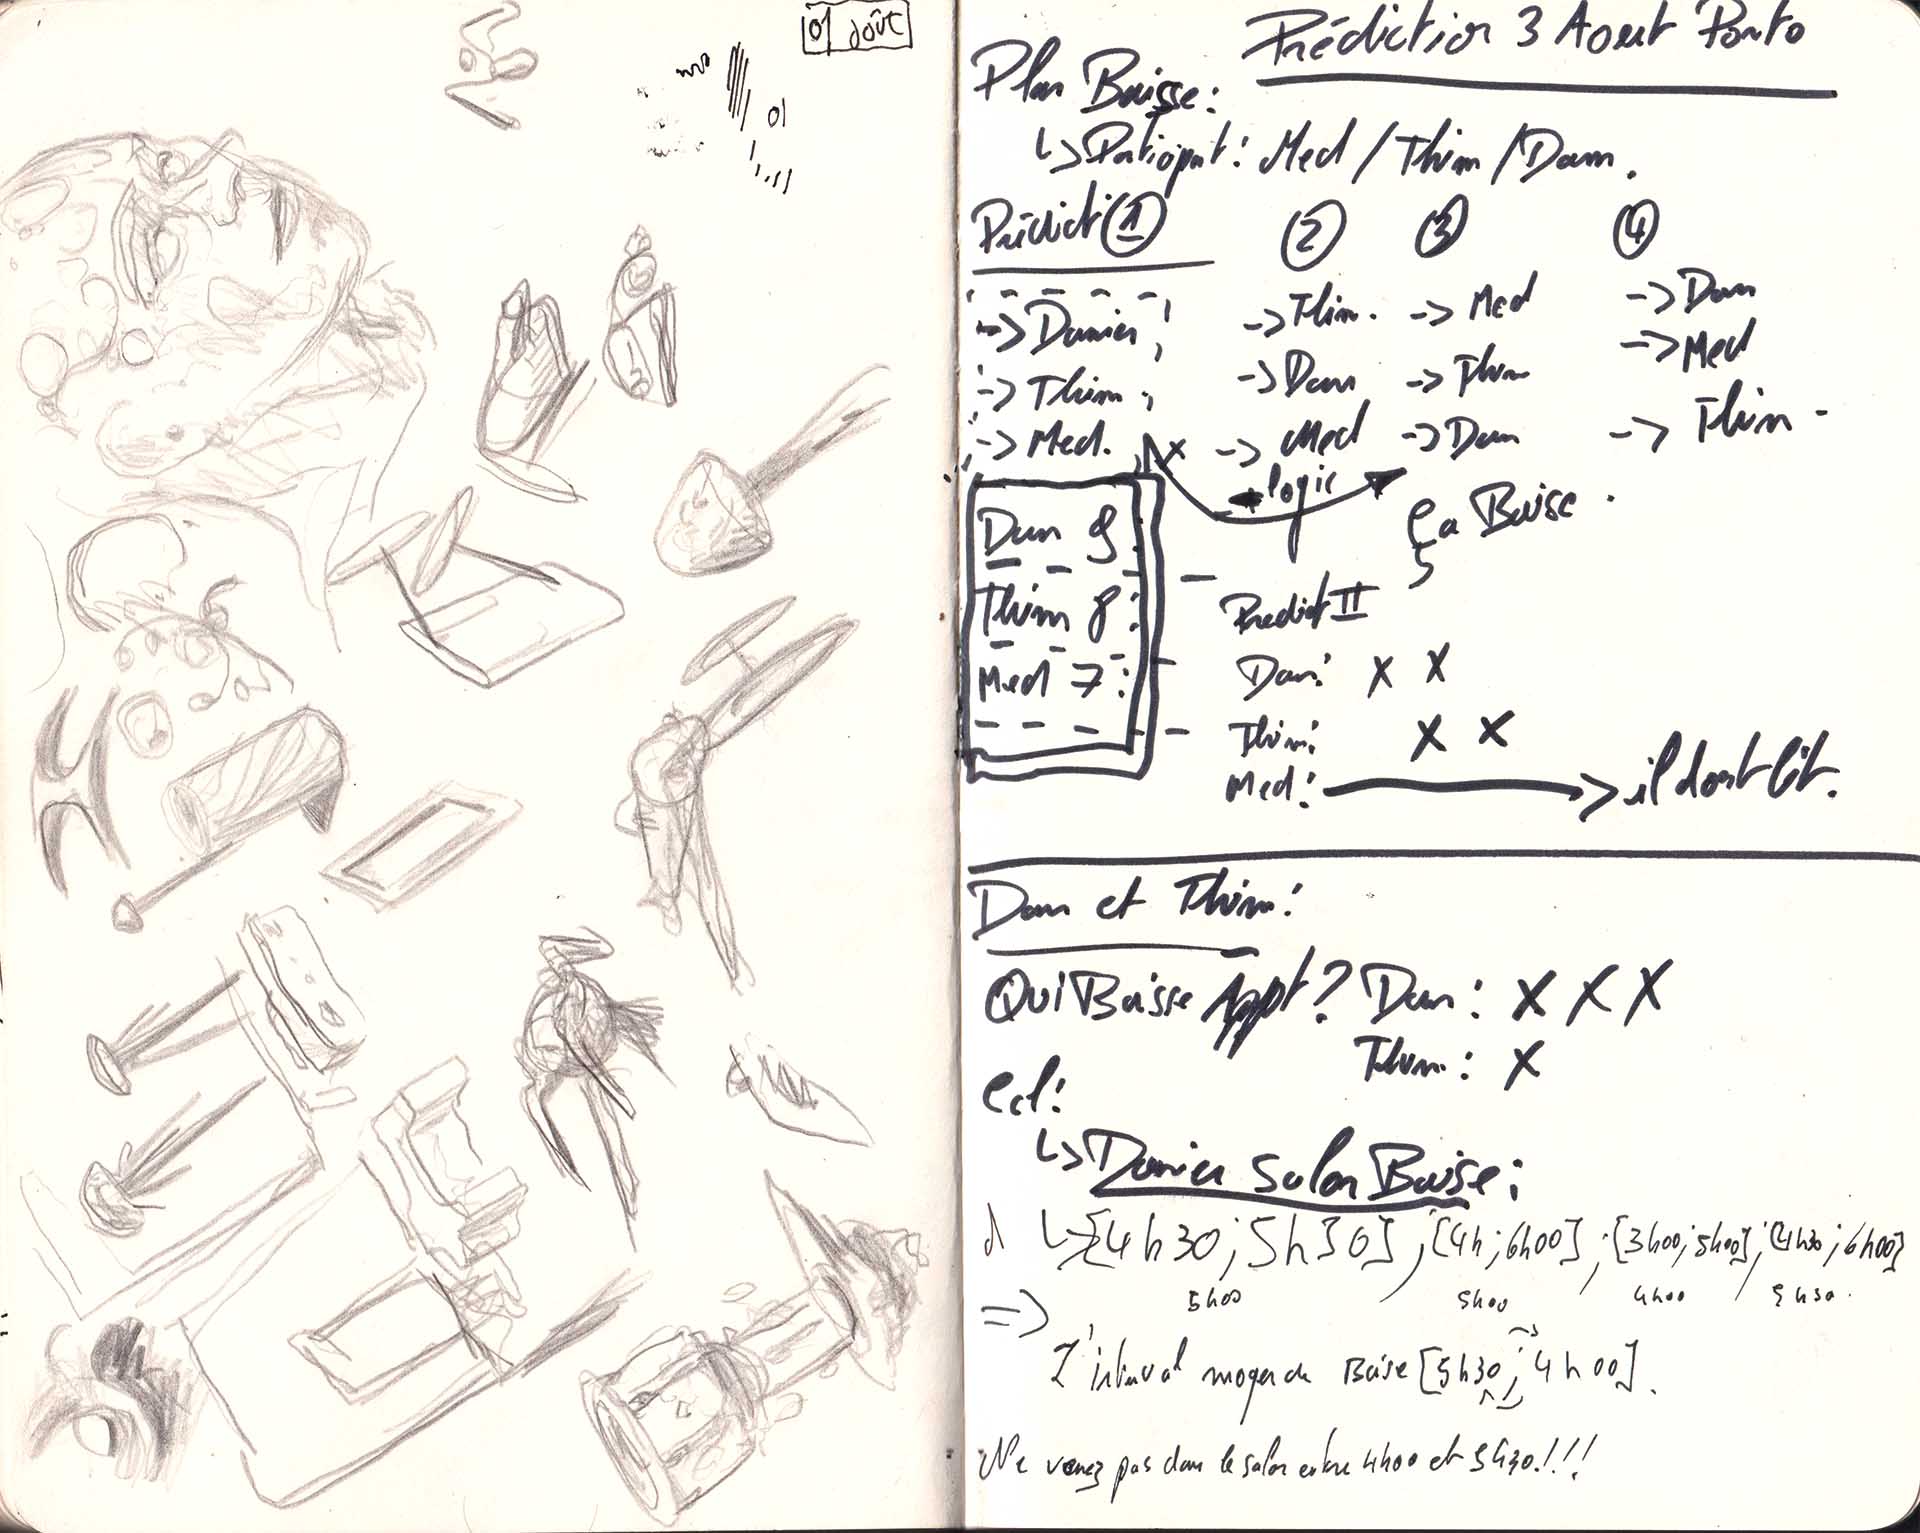 01 août
01
Prédiction 3 Aout Porto
Plan Baisse :
↳ Participant : Med / Thim / Dam.
Prédict ① ② ③ ④
-> Damien -> Thim. -> Med -> Dam
-> Thim -> Dam -> Thim -> Med
-> Med. -> Med -> Dam -> Thim -
logic
Ça Baise.
Dam 8
Thim 8 :
Med 7 :
Predict II
Dam : X X
Thim : X X
Med : -> il dort lit.
Dam et Thim :
Qui Baisse Appt ? Dam : X X X
Thim : X
↳ Damien Salon Baise :
↳ [4h30 ; 5h30] , [4h ; 6h00] , [3h00 ; 5h00] , [4h30 ; 6h00]
5h00 5h00 4h00 5h30.
=>
L'interval moyen de Baise [5h30 ; 4h00].
Ne venez pas dans le salon entre 4h00 et 5h30 !!!